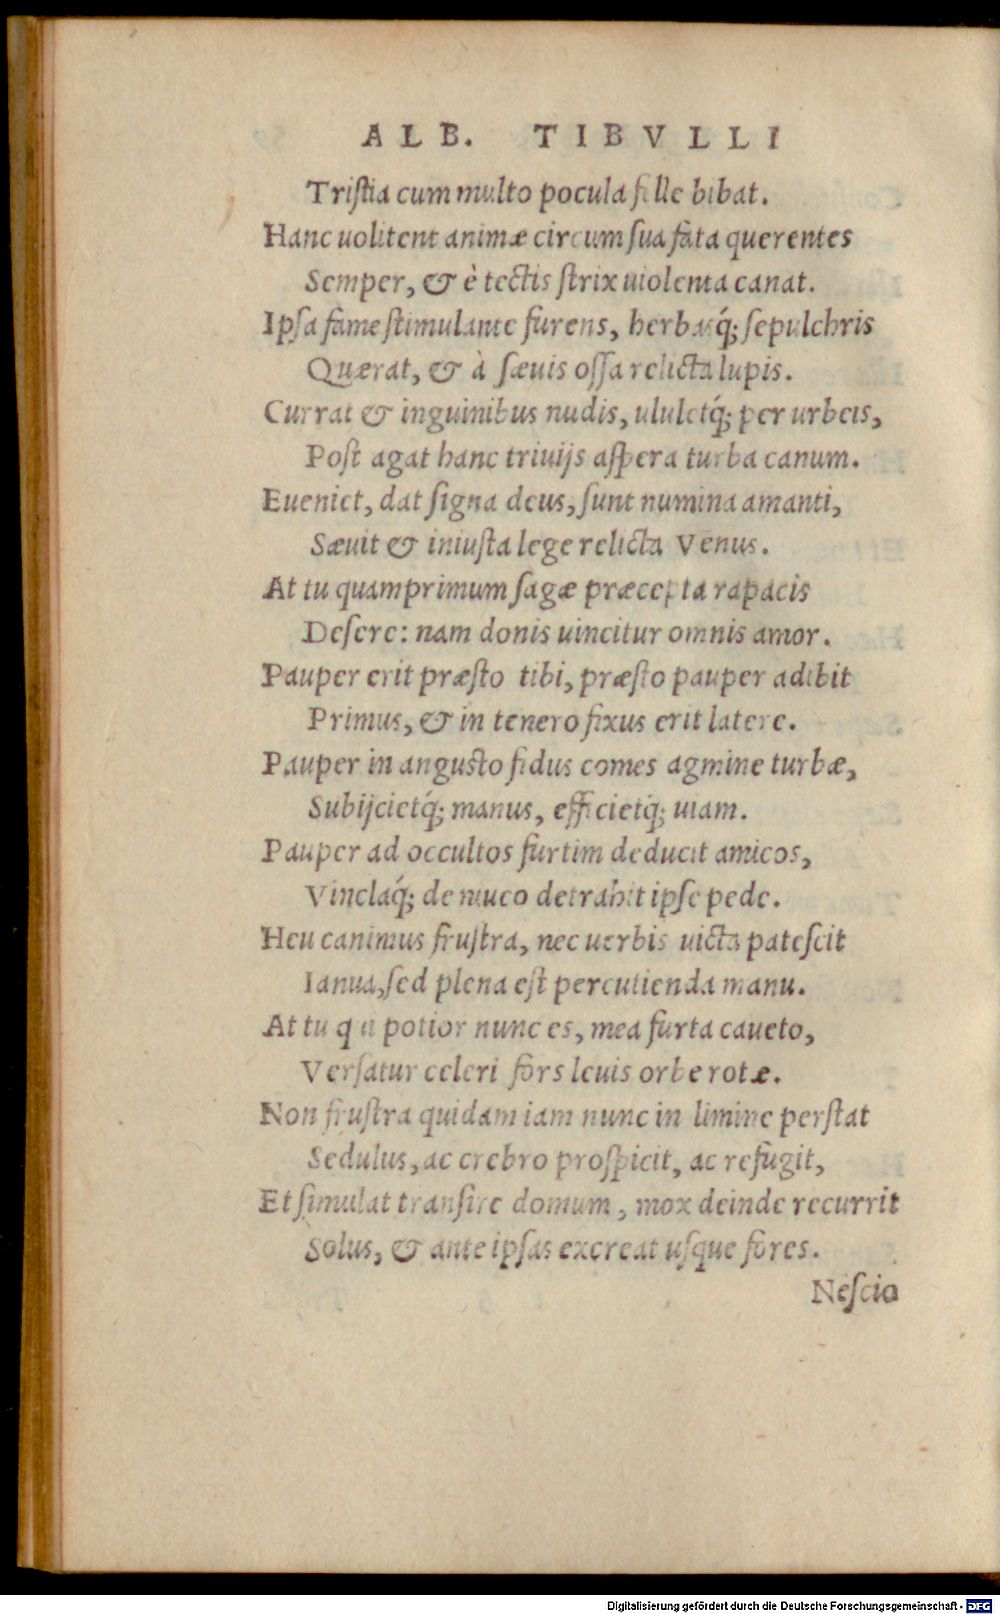 ALB. TIBVLLI
Tristia cum multo pocula felle bibat.
Hanc uolitent animæ circum sua fata querentes
Semper, & è tectis strix uiolenta canat.
Ipsa fame stimulante furens, herbasq́; sepulchris
Quærat, & à sæuis ossa relicta lupis.
Currat & inguinibus nudis, ululetq́; per urbeis,
Post agat hanc triuijs aspera turba canum.
Eueniet, dat signa deus, sunt numina amanti,
Sæuit & iniusta lege relicta Venus.
At tu quamprimum sagæ præcepta rapacis
Desere: nam donis uincitur omnis amor.
Pauper erit præsto tibi, præsto pauper adibit
Primus, & in tenero fixus erit latere.
Pauper in angusto fidus comes agmine turbæ,
Subijcietq́; manus, efficietq́; uiam.
Pauper ad occultos furtim deducit amicos,
Vinclaq́; de niueo detrahit ipse pede.
Heu canimus frustra, nec uerbis uicta patescit
Ianua, sed plena est percutienda manu.
At tu qui potior nunc es, mea furta caueto,
Versatur celeri fors leuis orbe rotæ.
Non frustra quidam iam nunc in limine perstat
Sedulus, ac crebro prospicit, ac refugit,
Et simulat transire domum, mox deinde recurrit
Solus, & ante ipsas excreat usque fores.
Nescio
Digitalisierung gefördert durch die Deutsche Forschungsgemeinschaft - DFG